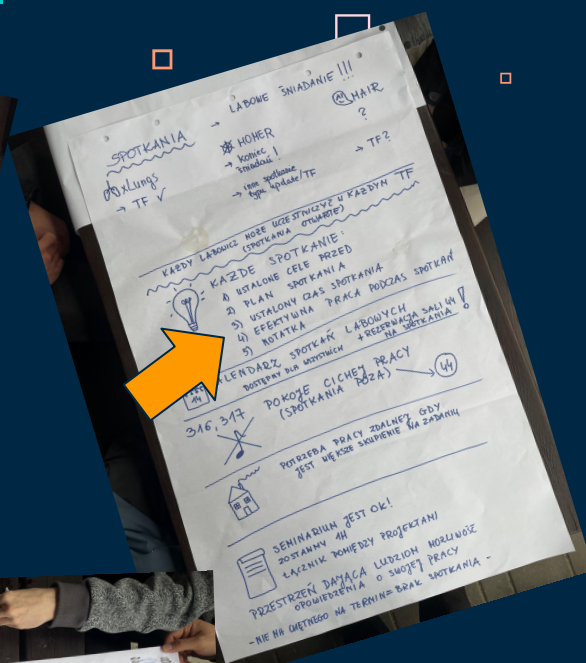 LABOWE ŚNIADANIE !!!
SPOTKANIA
HOHER
koniec śniadań!
inne spotkanie
typu update/TF
MAIR
?
TF?
xLungs
TF ✓
KAŻDY LABOWICZ MOŻE UCZESTNICZYĆ W KAŻDYM TF
(SPOTKANIA OTWARTE)
KAŻDE SPOTKANIE:
1) USTALONE CELE PRZED
2) PLAN SPOTKANIA
3) USTALONY CZAS SPOTKANIA
4) EFEKTYWNA PRACA PODCZAS SPOTKAŃ
5) NOTATKA
14
LENDARZ SPOTKAŃ LABOWYCH
DOSTĘPNY DLA WSZYSTKICH + REZERWACJA SALI 44
NA SPOTKANIA !
316, 317
POKOJE CICHEJ PRACY
(SPOTKANIA POZA) → 44
POTRZEBA PRACY ZDALNEJ GDY
JEST WIĘKSZE SKUPIENIE NA ZADANIU
SEMINARIUM JEST OK!
ZOSTAŃMY 1H
ŁĄCZNIK POMIĘDZY PROJEKTAMI
PRZESTRZEŃ DAJĄCA LUDZIOM MOŻLIWOŚĆ
OPOWIEDZENIA O SWOJEJ PRACY
- NIE MA CHĘTNEGO NA TERMIN = BRAK SPOTKANIA -